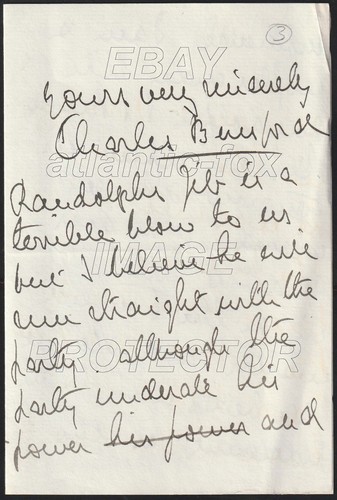 3
EBAY
Yours very sincerely
Charles Beresford
atlantic-fox
Randolphs jib is a
terrible blow to us
but I believe he will
IMAGE
run straight with the
PROTECTOR
party although the
party underate his
power his power and